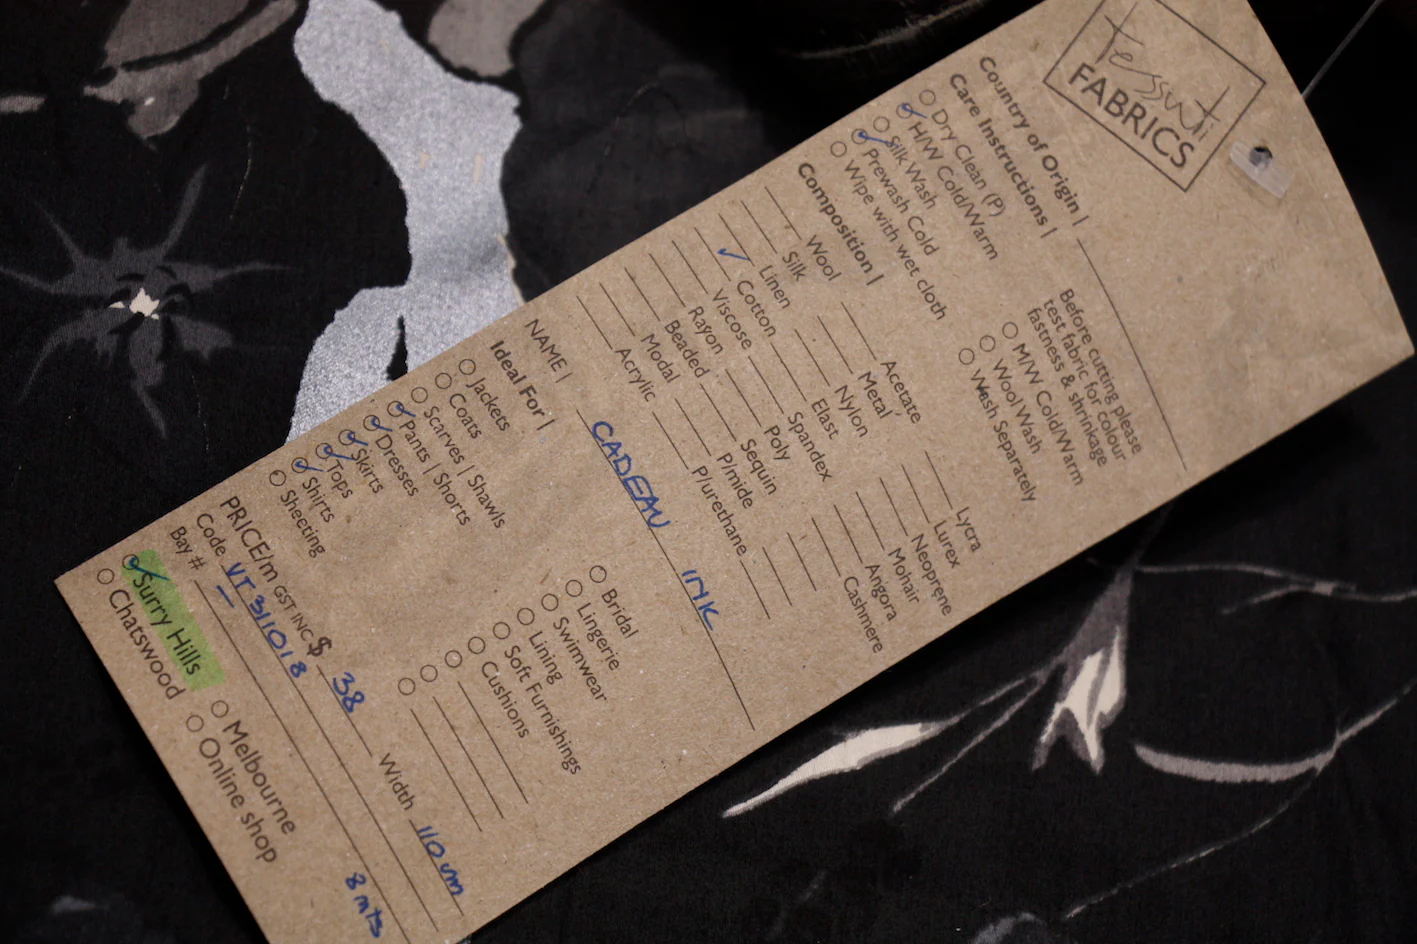 tessuti
FABRICS
Country of Origin |
Care Instructions |
Dry Clean (P)
H/W Cold/Warm
Silk Wash
Prewash Cold
Wipe with wet cloth
Before cutting please
test fabric for colour
fastness & shrinkage
M/W Cold/Warm
Wool Wash
Wash Separately
Composition |
Wool
Silk
Linen
✓ Cotton
Viscose
Rayon
Beaded
Modal
Acrylic
Acetate
Metal
Nylon
Elast
Spandex
Poly
Sequin
P/mide
P/urethane
Lycra
Lurex
Neoprene
Mohair
Angora
Cashmere
NAME | CADEAU INK
Ideal For |
Jackets
Coats
Scarves | Shawls
Pants | Shorts
Dresses
Skirts
Tops
Shirts
Sheeting
Bridal
Lingerie
Swimwear
Lining
Soft Furnishings
Cushions
PRICE/m GST INC $ 38 Width 110cm
Code VT 311018
Bay # 8 mts
Surry Hills
Chatswood
Melbourne
Online shop